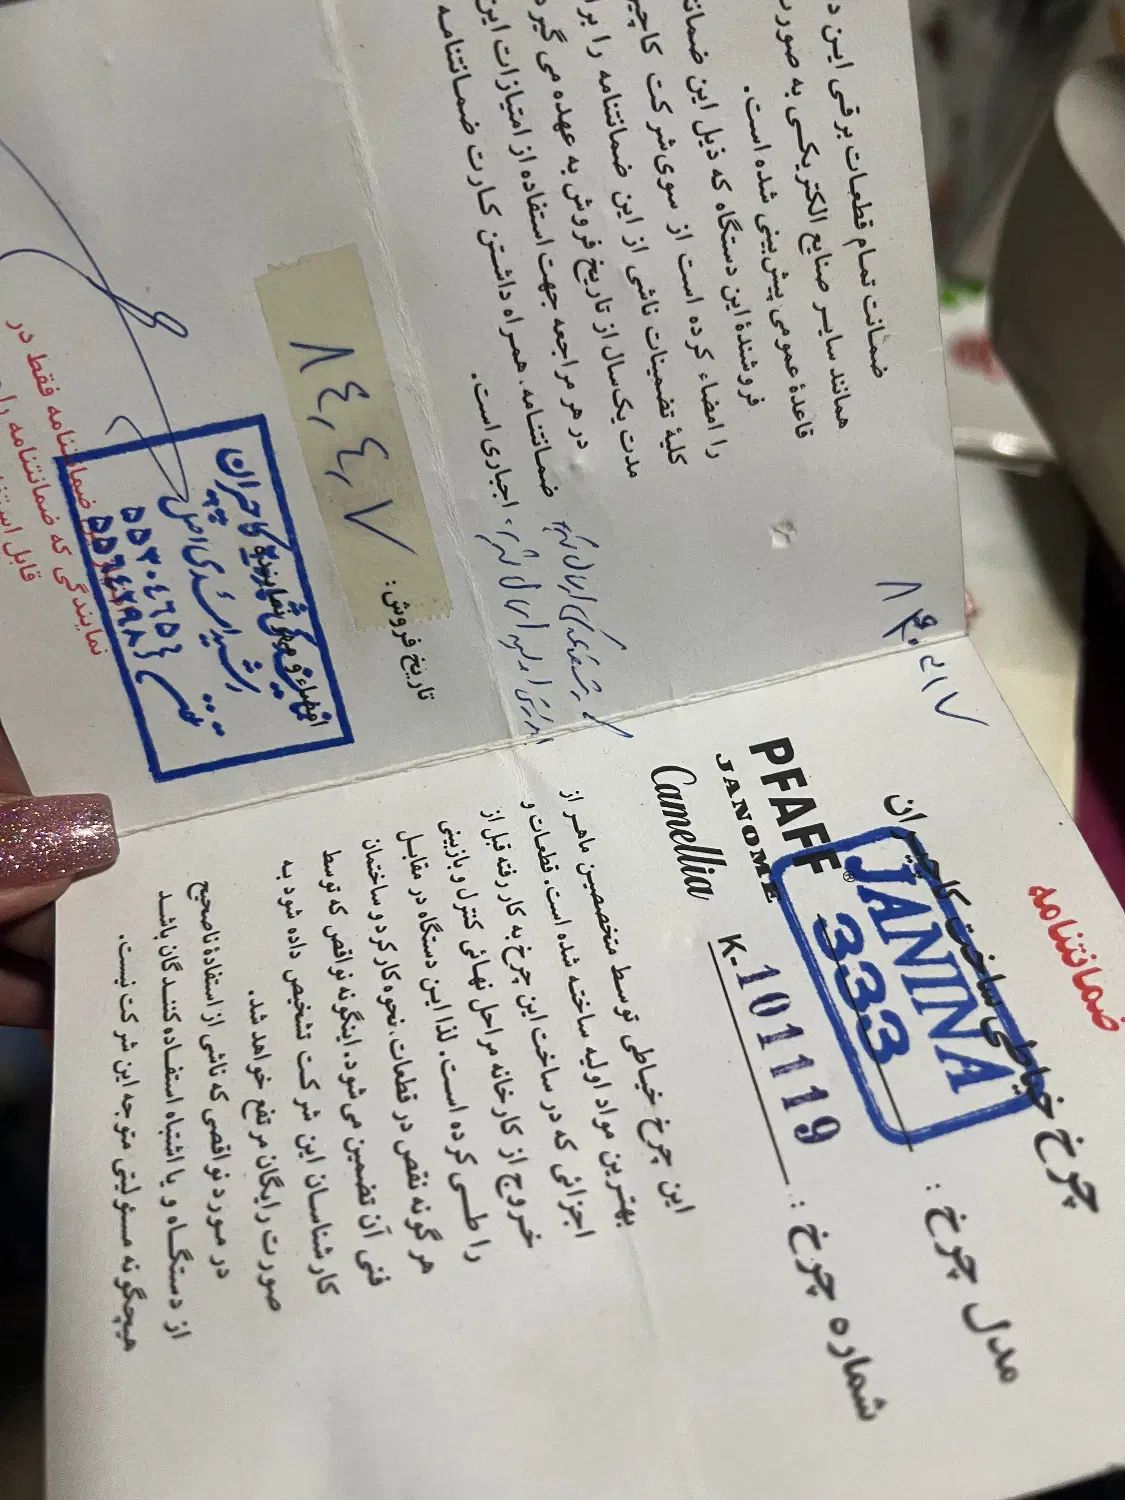 ضمانتنامه
چرخ خیاطی ساخت کاچیران
مدل چرخ :
JANINA
333
PFAFF®
JANOME
Camellia
شماره چرخ :
K-101119
این چرخ خیاطی توسط متخصصین ماهر از
بهترین مواد اولیه ساخته شده است. قطعات و
اجزائی که در ساخت این چرخ به کار رفته قبل از
خروج از کارخانه مراحل نهائی کنترل و بازبینی
را طی کرده است. لذا این دستگاه در مقابل
هرگونه نقص در قطعات، نحوه کارکرد و ساختمان
فنی آن تضمین می شود. اینگونه نواقص که توسط
کارشناسان این شرکت تشخیص داده شود به
صورت رایگان مرتفع خواهد شد.
در مورد نواقصی که ناشی از استفادهٔ ناصحیح
از دستگاه و یا اشتباه استفاده کنندگان باشد
هیچگونه مسئولیتی متوجه این شرکت نیست.
ضمانت تمام قطعات برقی این د
همانند سایر صنایع الکتریکی به صورت
قاعدهٔ عمومی پیش بینی شده است.
فروشندهٔ این دستگاه که ذیل این ضمانت
را امضاء کرده است از سوی شرکت کاچیر
کلیهٔ تضمینات ناشی از این ضمانتنامه را برا
مدت یک سال از تاریخ فروش به عهده می گیرد
در هر مراجعه جهت استفاده از امتیازات این
ضمانتنامه، همراه داشتن کارت ضمانتنامه
اجباری است.
تاریخ فروش:
٨٤،٤،٧
امضاء و مهر نماینده
کاچیران
٥٥٣٠٤٦٥٤
ضمانتنامه فقط در
نمایندگی که ضمانتنامه را
قابل استف